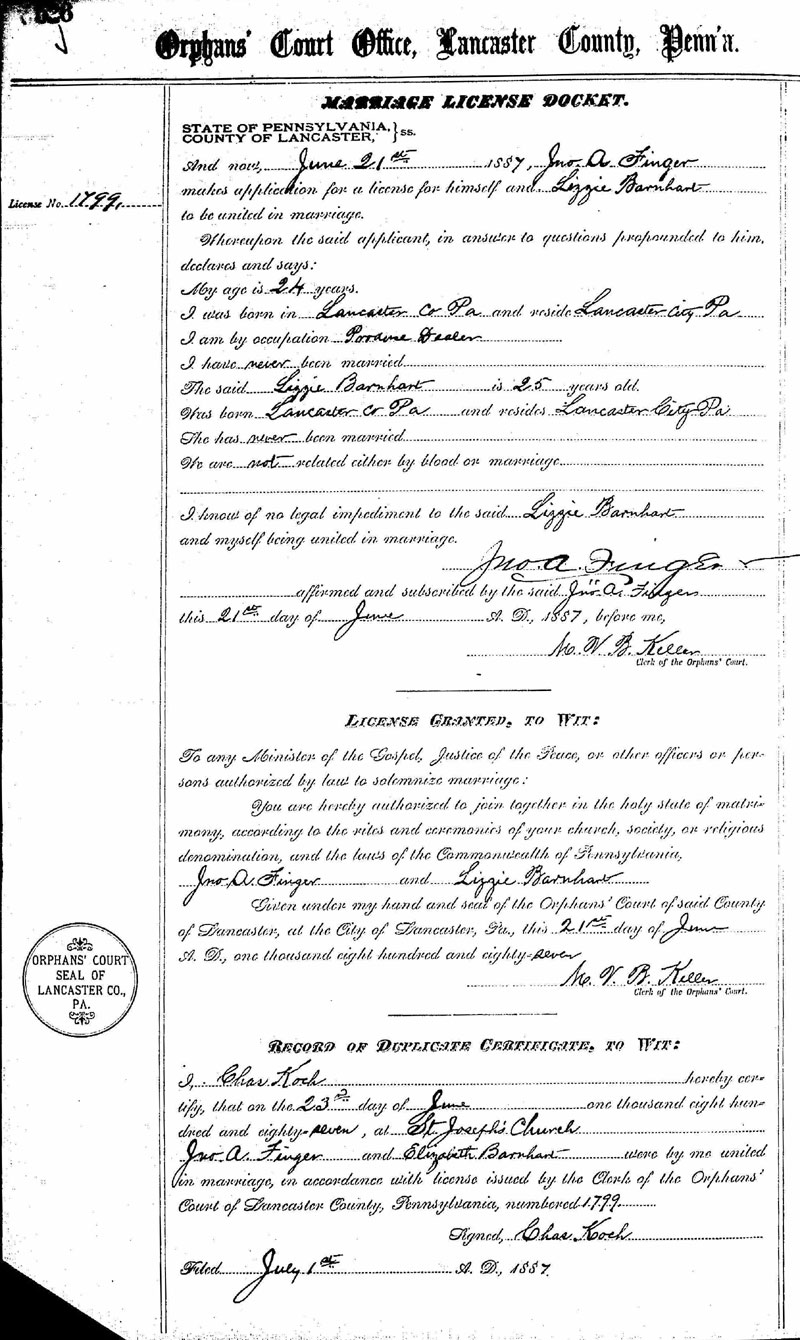 Orphans' Court Office, Lancaster County, Penn'a.
MARRIAGE LICENSE DOCKET.
STATE OF PENNSYLVANIA, } ss.
COUNTY OF LANCASTER,
And now, June 21st 1887, Jno. A. Finger
License No. 1799.
makes application for a license for himself and Lizzie Barnhart
to be united in marriage.
Whereupon the said applicant, in answer to questions propounded to him,
declares and says:
My age is 24 years.
I was born in Lancaster Co Pa and reside Lancaster City Pa
I am by occupation Porduse Dealer
I have never been married
The said Lizzie Barnhart is 25 years old.
Was born Lancaster Co Pa and resides Lancaster City Pa
She has never been married
We are not related either by blood or marriage
I know of no legal impediment to the said Lizzie Barnhart
and myself being united in marriage.
Jno. A. Finger
affirmed and subscribed by the said Jno. A. Finger
this 21st day of June A. D., 1887, before me,
M. V. B. Keller
Clerk of the Orphans' Court.
LICENSE GRANTED, TO WIT:
To any Minister of the Gospel, Justice of the Peace, or other officers or per-
sons authorized by law to solemnize marriage:
You are hereby authorized to join together in the holy state of matri-
mony, according to the rites and ceremonies of your church, society, or religious
denomination, and the laws of the Commonwealth of Pennsylvania,
Jno. A. Finger and Lizzie Barnhart
Given under my hand and seal of the Orphans' Court of said County
of Lancaster, at the City of Lancaster, Pa., this 21st day of June
A. D., one thousand eight hundred and eighty-seven
M. V. B. Keller
Clerk of the Orphans' Court.
ORPHANS' COURT
SEAL OF
LANCASTER CO.,
PA.
RECORD OF DUPLICATE CERTIFICATE, TO WIT:
I, Chas Koch hereby cer-
tify, that on the 23d day of June one thousand eight hun-
dred and eighty-seven, at St. Joseph's Church
Jno. A. Finger and Elizabeth Barnhart were by me united
in marriage, in accordance with license issued by the Clerk of the Orphans'
Court of Lancaster County, Pennsylvania, numbered 1799
Signed, Chas Koch
Filed July 1st A. D., 1887